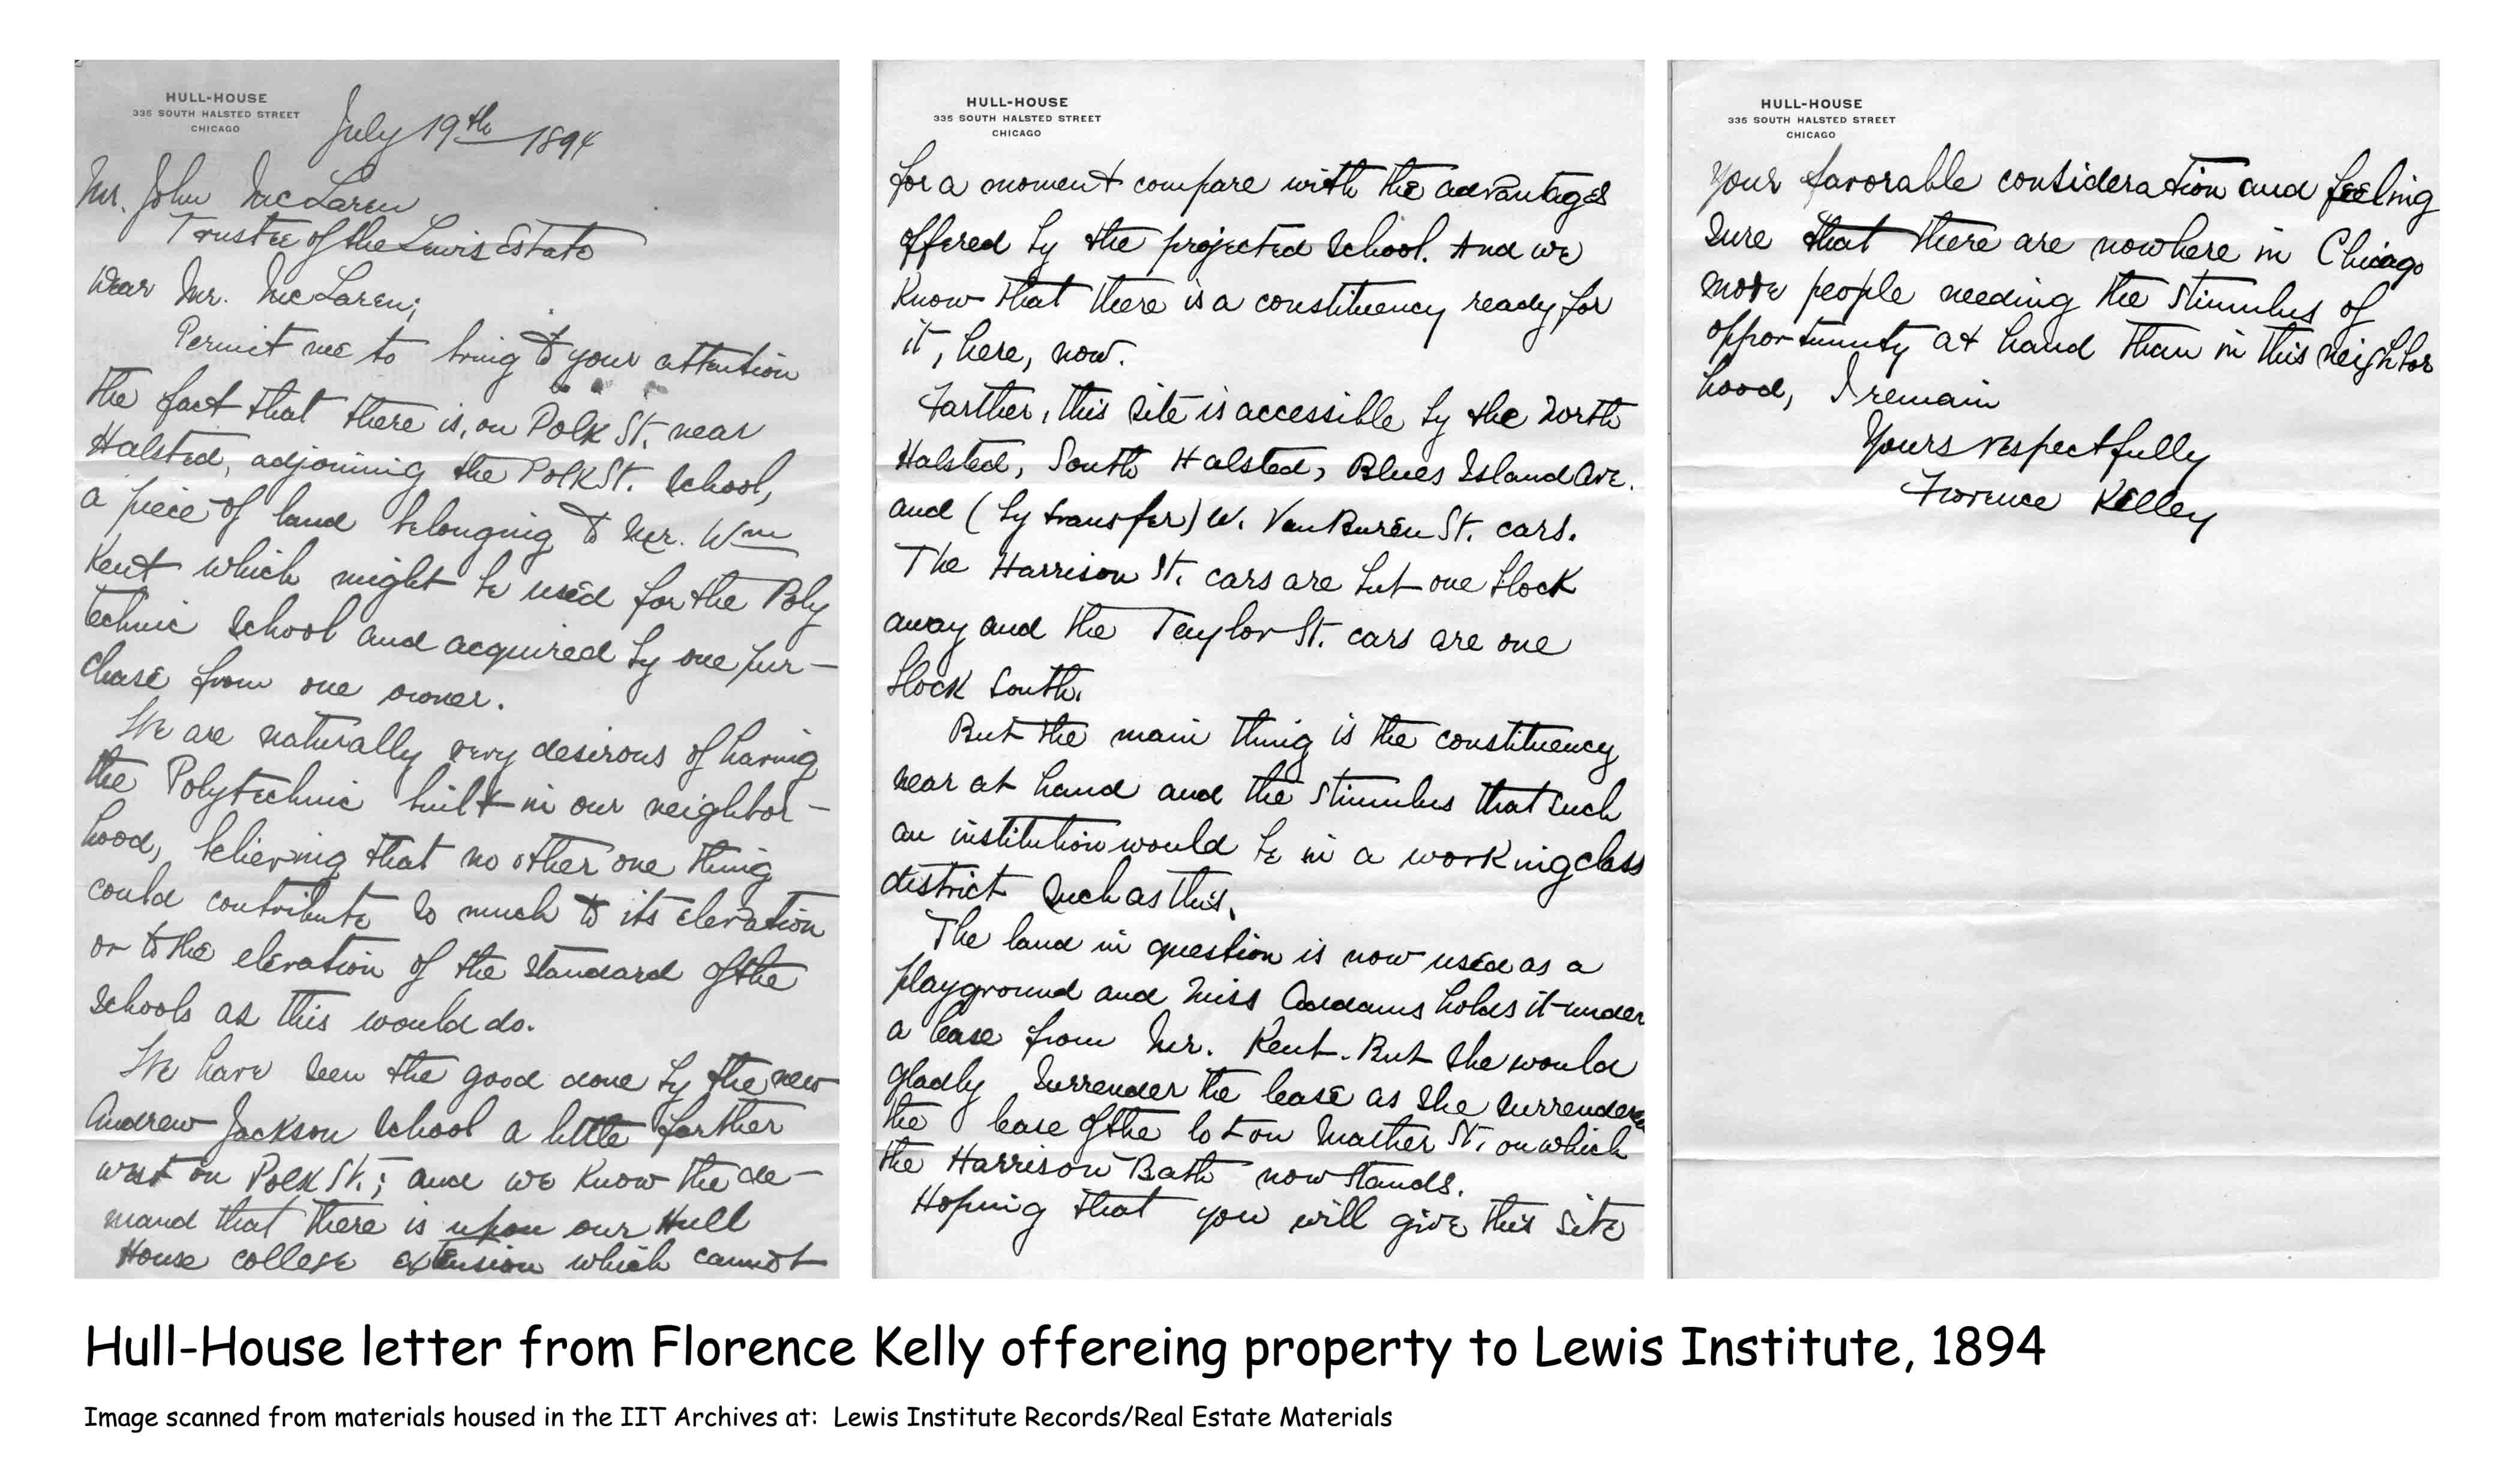 HULL-HOUSE
335 SOUTH HALSTED STREET
CHICAGO
July 19th 1894
Mr. John McLaren
Trustee of the Lewis Estate
Dear Mr. McLaren;
Permit me to bring to your attention
the fact that there is, on Polk St. near
Halsted, adjoining the Polk St. School,
a piece of land belonging to Mr. Wm
Kent which might be used for the Poly
technic School and acquired by one pur-
chase from one owner.
We are naturally very desirous of having
the Polytechnic built in our neighbor-
hood, believing that no other one thing
could contribute so much to its elevation
or to the elevation of the standard of the
schools as this would do.
We have seen the good done by the new
Andrew Jackson School a little farther
west on Polk St.; and we know the de-
mand that there is upon our Hull
House college extension which cannot
HULL-HOUSE
335 SOUTH HALSTED STREET
CHICAGO
for a moment compare with the advantages
offered by the projected school. And we
know that there is a constituency ready for
it, here, now.
Farther, this site is accessible by the North
Halsted, South Halsted, Blues Island Ave.
and (by transfer) W. Van Buren St. cars.
The Harrison St. cars are but one block
away and the Taylor St. cars are one
block south.
But the main thing is the constituency
near at hand and the stimulus that such
an institution would be in a working class
district such as this.
The land in question is now used as a
playground and Miss Addams holds it under
a lease from Mr. Kent. But she would
gladly surrender the lease as she surrendered
the lease of the lot on Mather St. on which
the Harrison Bath now stands.
Hoping that you will give this site
HULL-HOUSE
335 SOUTH HALSTED STREET
CHICAGO
your favorable consideration and feeling
sure that there are nowhere in Chicago
more people needing the stimulus of
opportunity at hand than in this neighbor
hood, I remain
Yours respectfully
Florence Kelley
Hull-House letter from Florence Kelly offereing property to Lewis Institute, 1894
Image scanned from materials housed in the IIT Archives at: Lewis Institute Records/Real Estate Materials